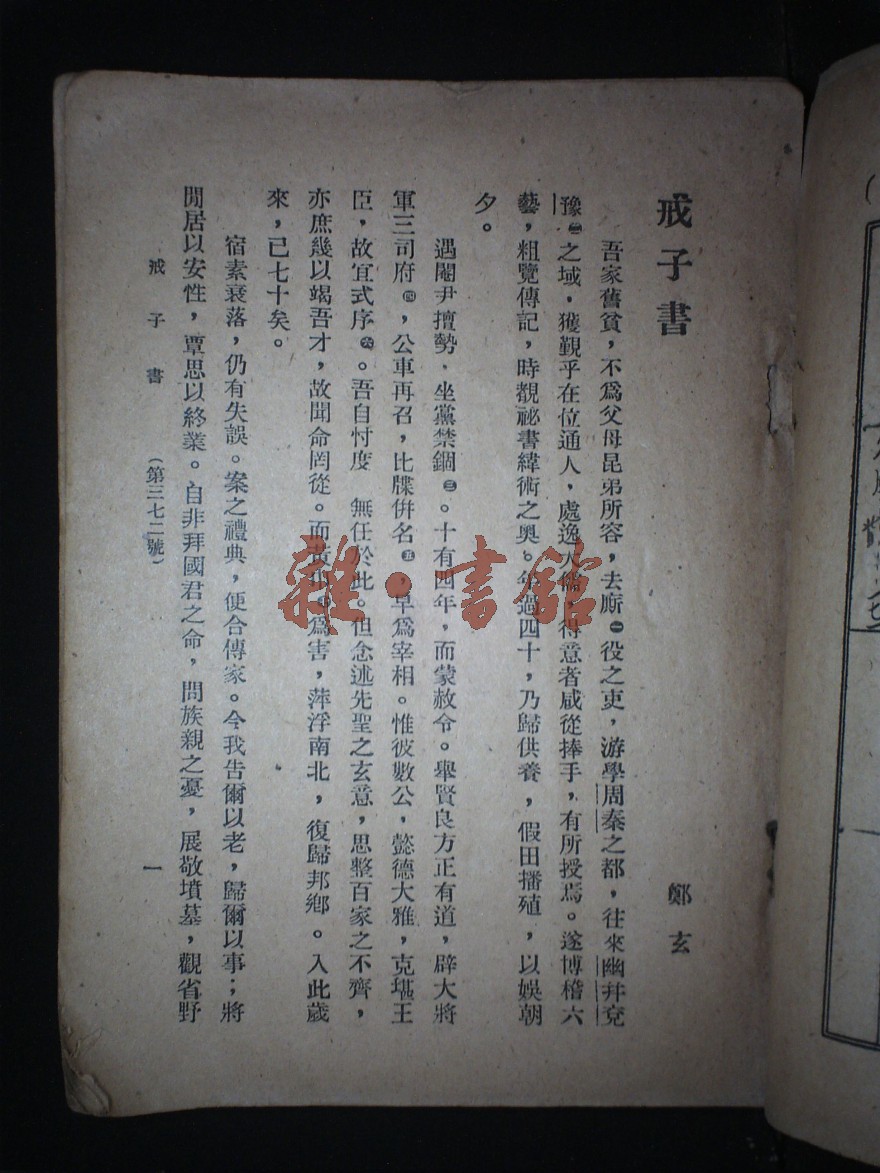 戒子書
鄭玄
吾家舊貧，不爲父母昆弟所容，去廝㊀役之吏，游學周秦之都，往來幽并兗
豫㊁之域，獲覲乎在位通人，處逸大儒，得意者咸從捧手，有所授焉。遂博稽六
藝，粗覽傳記，時覩祕書緯術之奥。年過四十，乃歸供養，假田播殖，以娛朝
夕。
遇閹尹擅勢，坐黨禁錮㊂。十有四年，而蒙赦令。舉賢良方正有道，辟大將
軍三司府㊃，公車再召，比牒併名㊄，早爲宰相。惟彼數公，懿德大雅，克堪王
臣，故宜式序㊅。吾自忖度 無任於此。但念述先聖之玄意，思整百家之不齊，
亦庶幾以竭吾才，故聞命罔從。而黃巾爲害，萍浮南北，復歸邦鄉。入此歲
來，已七十矣。
宿素衰落，仍有失誤。案之禮典，便合傳家。今我告爾以老，歸爾以事；將
閒居以安性，覃思以終業。自非拜國君之命，問族親之憂，展敬墳墓，觀省野
戒子書 （第三七二號） 一
雜·書館